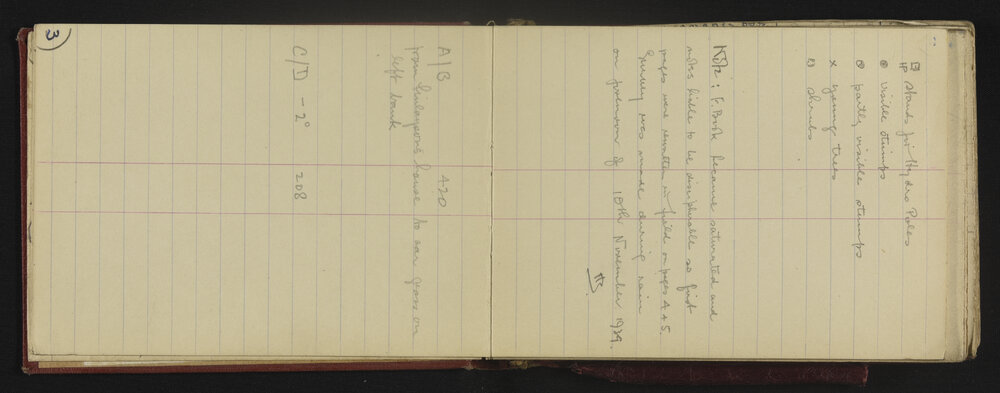 ⊡ HP stands for Hydro Poles
⊙ visible stumps
⊙ partly visible stumps
x young trees
⊡ shrubs
Note: F. Book became saturated and
notes liable to be undecipherable so first
pages were rewritten in field on pages 4 + 5.
Survey was made during rain
on forenoon of 10th November 1929.
3
A/B 420
from Finlaysons house to on
left bank
C/D - 2° 208